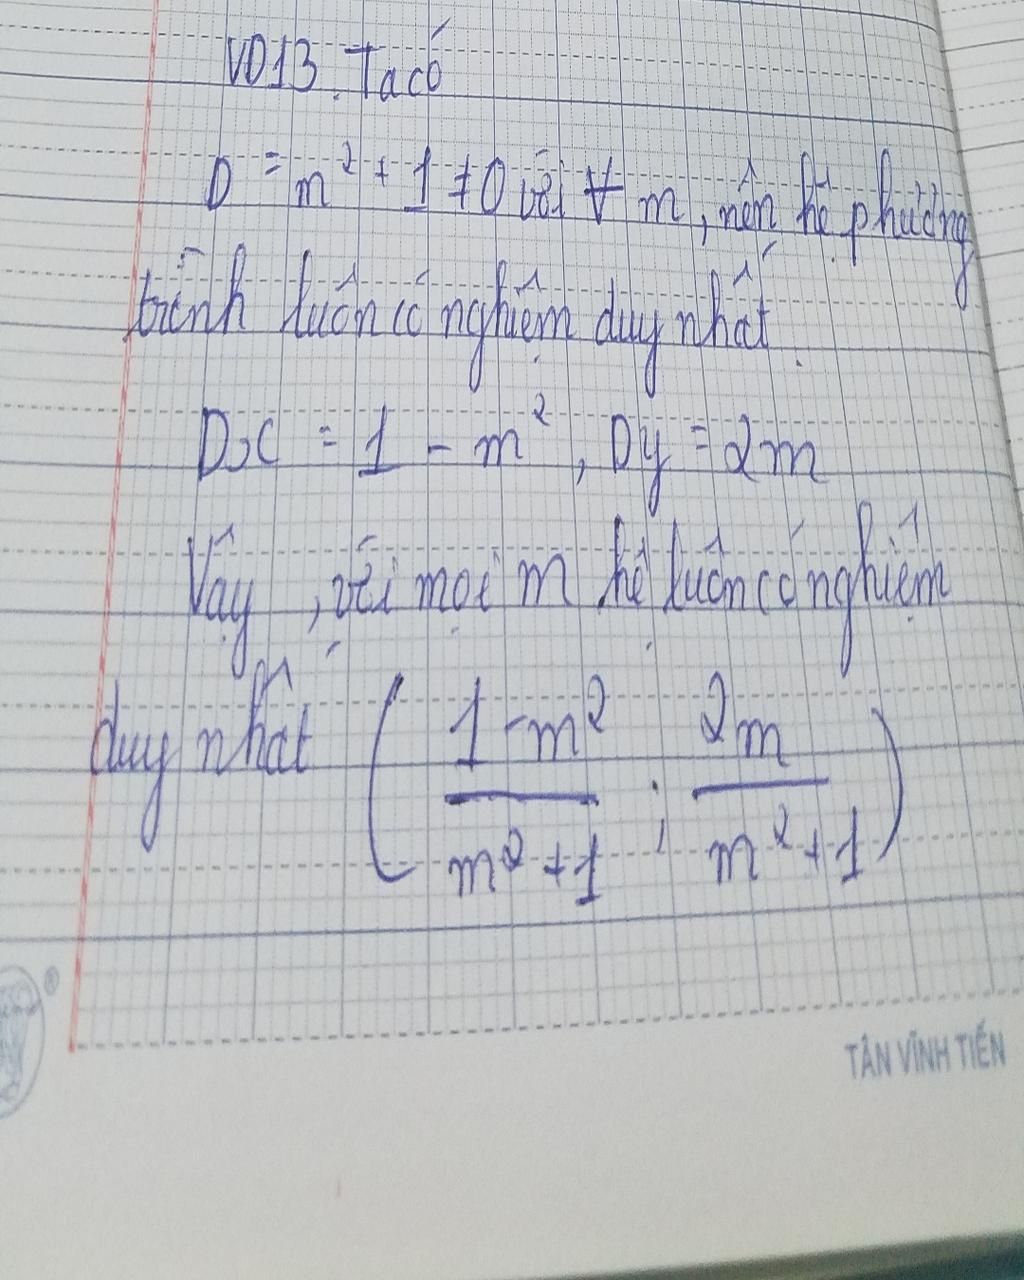 VD13. Ta có
D = m² + 1 ≠ 0 với ∀ m, nên hệ phương
trình luôn có nghiệm duy nhất.
Dx = 1 - m², Dy = 2m
Vậy, với mọi m hệ luôn có nghiệm
duy nhất ( (1 - m²)/(m² + 1) ; 2m/(m² + 1) )
TÂN VĨNH TIẾN